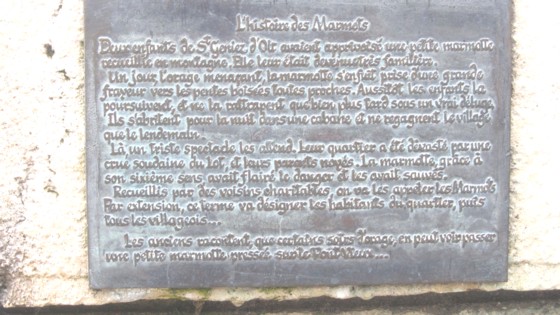 L'histoire des Marmots
Deux enfants de St Geniez d'Olt avaient apprivoisé une petite marmotte
recueillie en montagne. Elle leur était devenue très familière.
Un jour l'orage menaçant, la marmotte s'enfuit prise d'une grande
frayeur vers les pentes boisées toutes proches. Aussitôt les enfants la
poursuivent, et ne la rattrapent que bien plus tard sous un vrai déluge.
Ils s'abritent pour la nuit dans une cabane et ne regagnent le village
que le lendemain.
Là un triste spectacle les attend. Leur quartier a été dévasté par une
crue soudaine du Lot, et leurs parents noyés. La marmotte, grâce à
son sixième sens avait flairé le danger et les avait sauvés.
Recueillis par des voisins charitables, on va les appeler les Marmots
Par extension, ce terme va désigner les habitants du quartier, puis
tous les villageois....
Les anciens racontent, que certains soirs d'orage, on peut voir passer
une petite marmotte pressée sur le Pont Vieux....